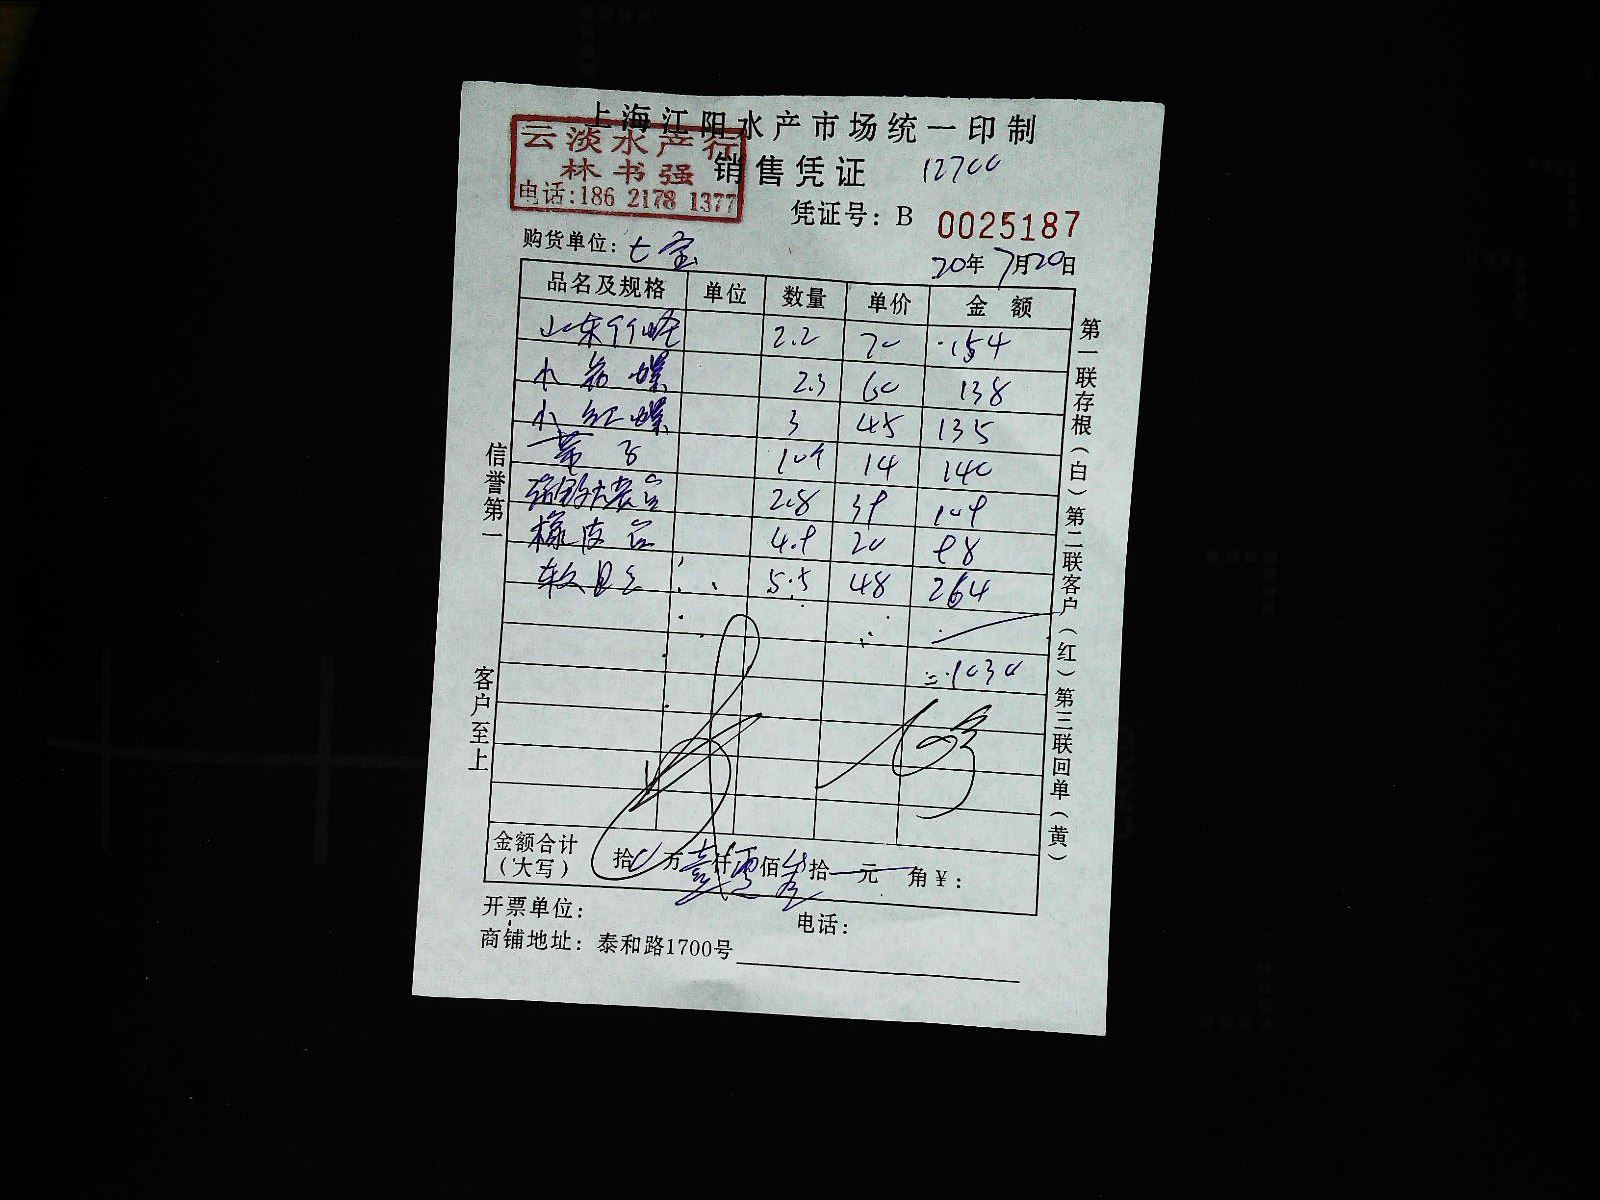 上海江阳水产市场统一印制
云淡水产行
林书强
电话:186 2178 1377
销售凭证 12700
凭证号: B 0025187
购货单位: 七宝
20年7月20日
品名及规格 单位 数量 单价 金额
山东竹蛏 2.2 70 154
小 螺 2.3 60 138
小红螺 3 45 135
10 14 140
2.8 39 109
橡皮 4.9 20 98
5.5 48 264
=1030
金额合计
(大写) 拾 万壹仟零佰叁拾 元 角¥:
开票单位: 电话:
商铺地址: 泰和路1700号
信誉第一
客户至上
第一联存根(白)第二联客户(红)第三联回单(黄)